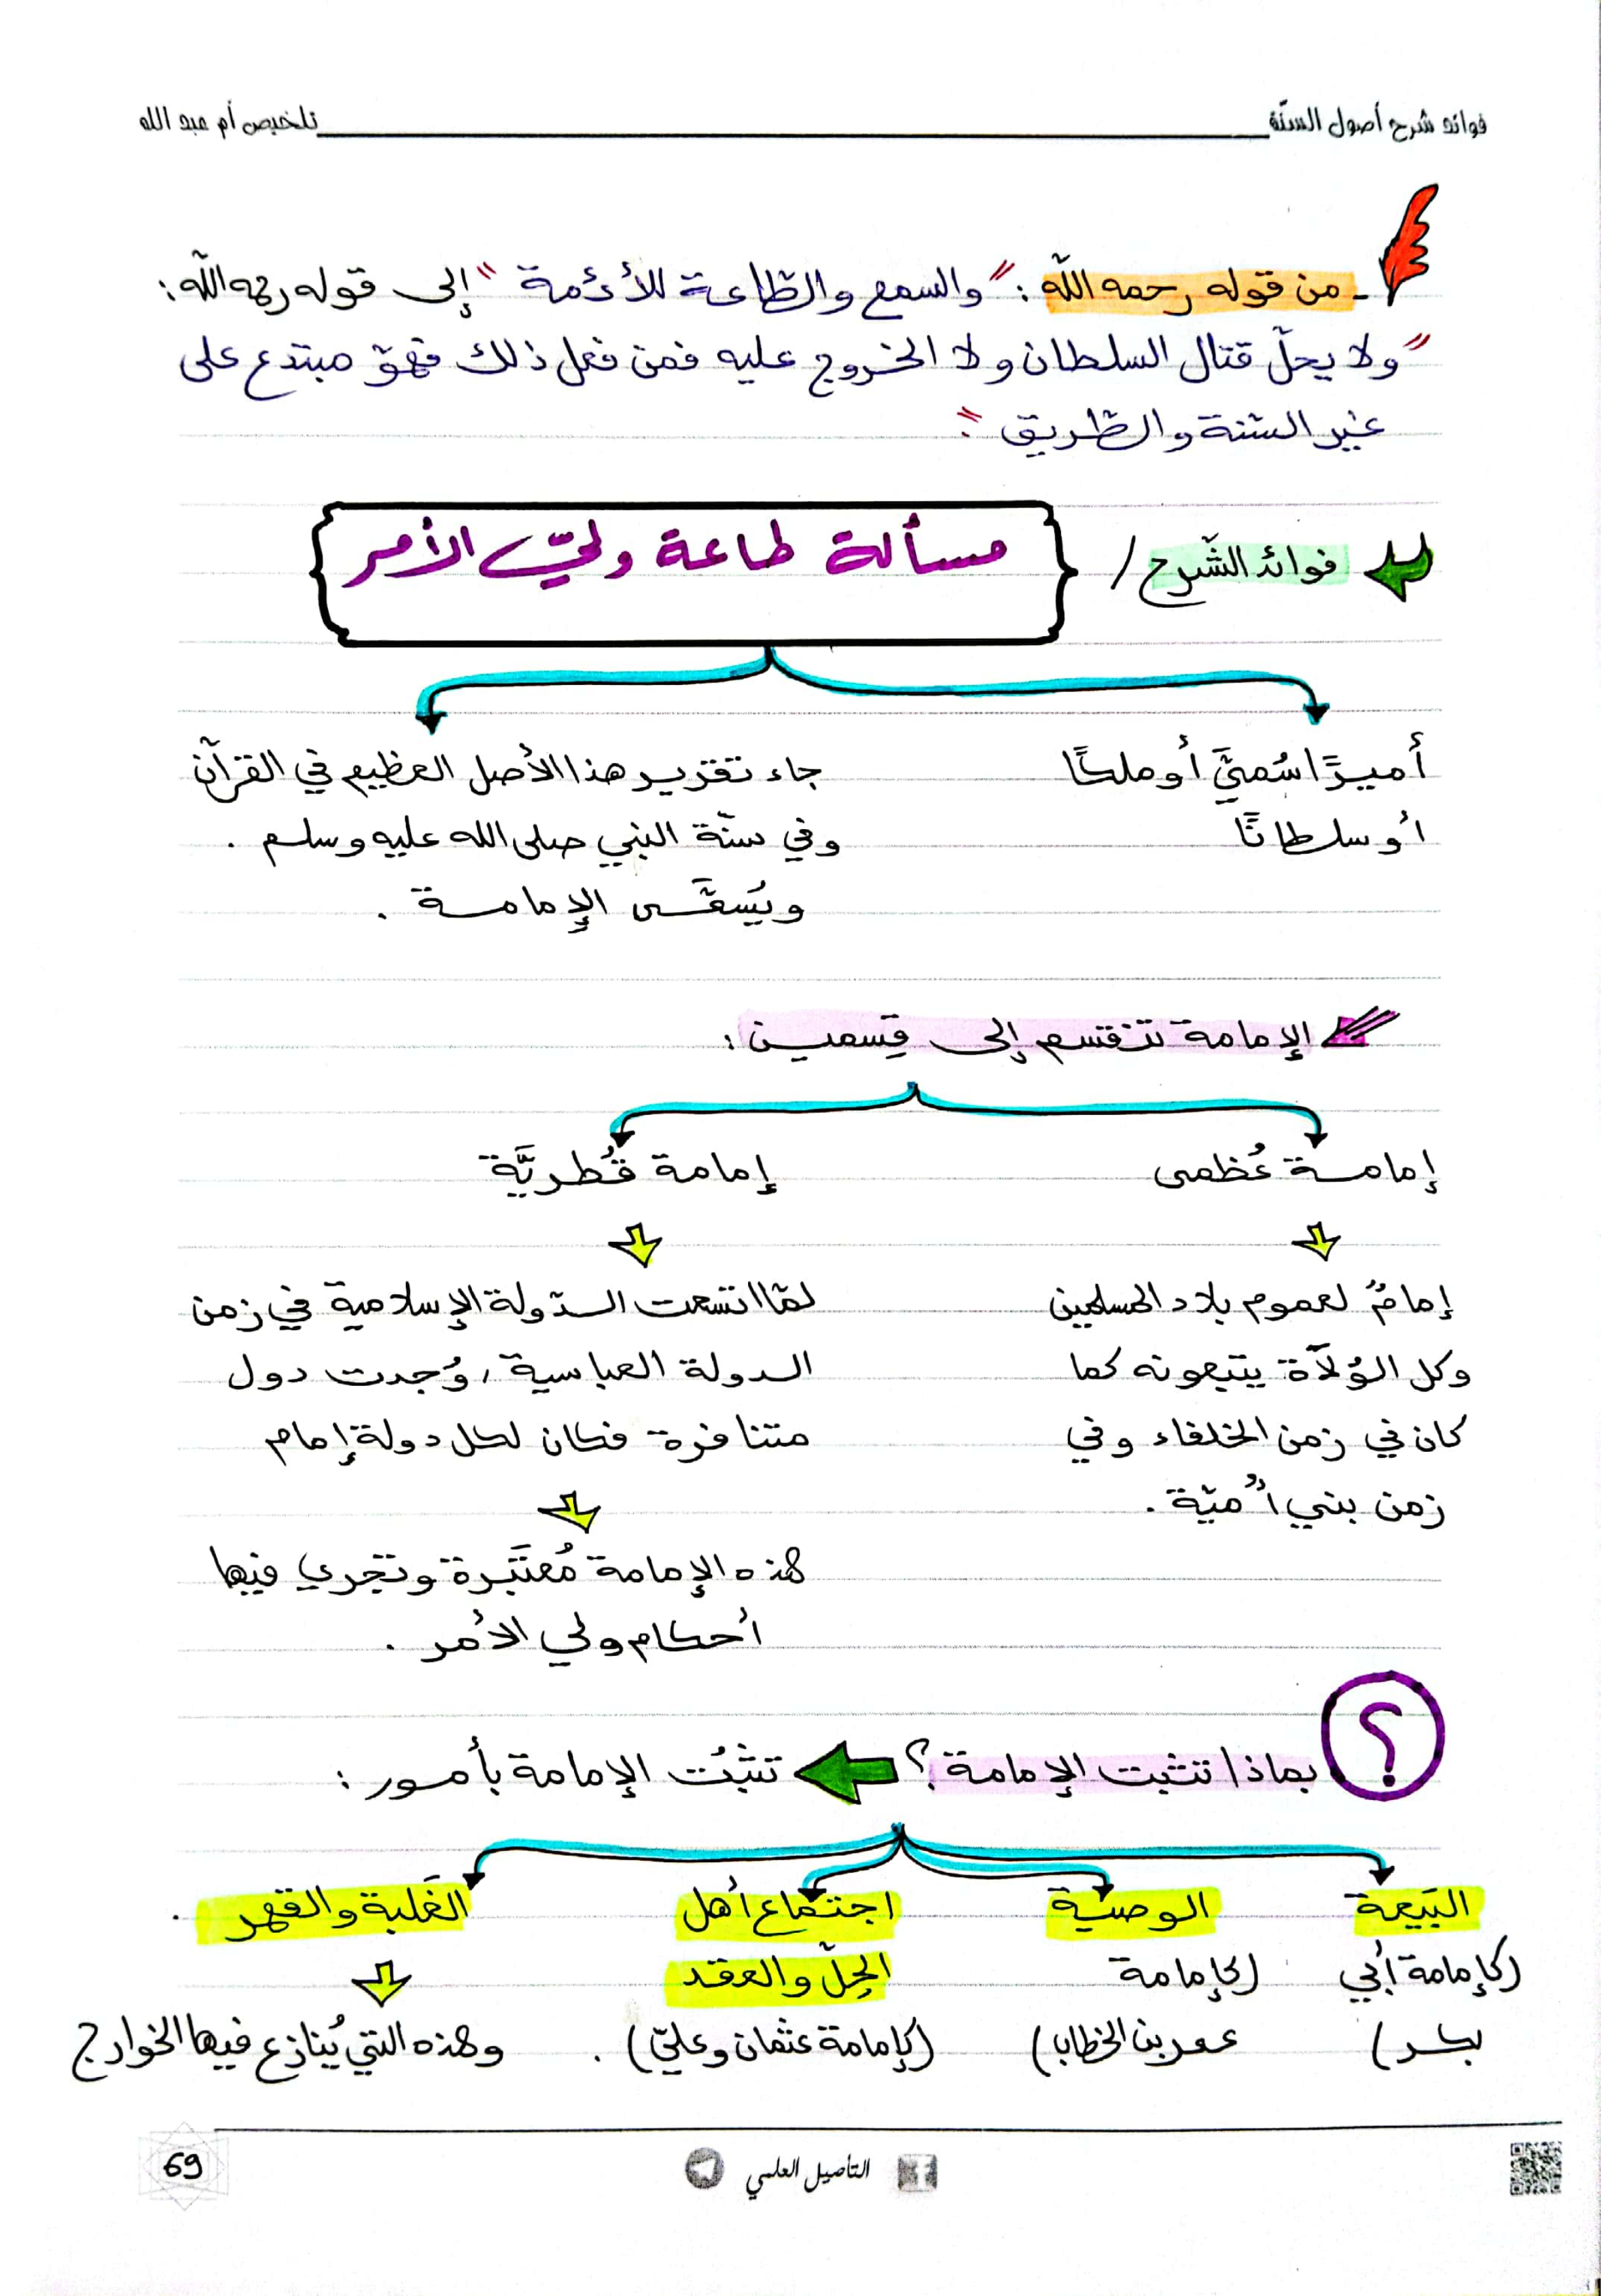 فوائد شرح أصول السنّة
تلخيص أم عبد الله
- من قوله رحمه الله : "والسمع والطّاعة للأئمة" إلى قوله رحمه الله :
"ولا يحلّ قتال السلطان ولا الخروج عليه فمن فعل ذلك فهوّ مبتدع على
غير السّنة والطّريق".
فوائد الشّرح /
مسألة طاعة وليّ الأمر
أميرًا سُميَّ أو ملكًا
أو سلطانًا
جاء تقرير هذا الأصل العظيم في القرآن
وفي سنّة النبي صلى الله عليه وسلم .
ويُسمَّى الإمامة .
الإمامة تنقسم إلى قِسمين :
إمامة عُظمى
إمامٌ لعموم بلاد المسلمين
وكل الوُلاّة يتبعونه كما
كان في زمن الخلفاء وفي
زمن بني أُميّة .
إمامة قُطريَّة
لمّا اتسعت الدّولة الإسلامية في زمن
الدولة العباسية ، وُجدت دول
متنافرة فكان لكل دولة إمام
هذه الإمامة مُعتَبرة وتجري فيها
أحكام ولي الأمر .
؟
بماذا تثبت الإمامة ؟
تثبُت الإمامة بأمور :
البَيعة
(كإمامة أبي
بكر)
الوصيّة
(كإمامة
عمر بن الخطاب)
اجتماع أهل
الحِلّ والعقد
(كإمامة عثمان وعليّ) .
الغَلبة والقهر .
وهذه التي يُنازع فيها الخوارج
التأصيل العلمي
69